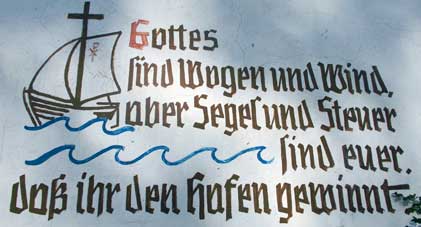 Gottes
sind Wogen und Wind,
aber Segel und Steuer
sind euer.
daß ihr den Hafen gewinnt